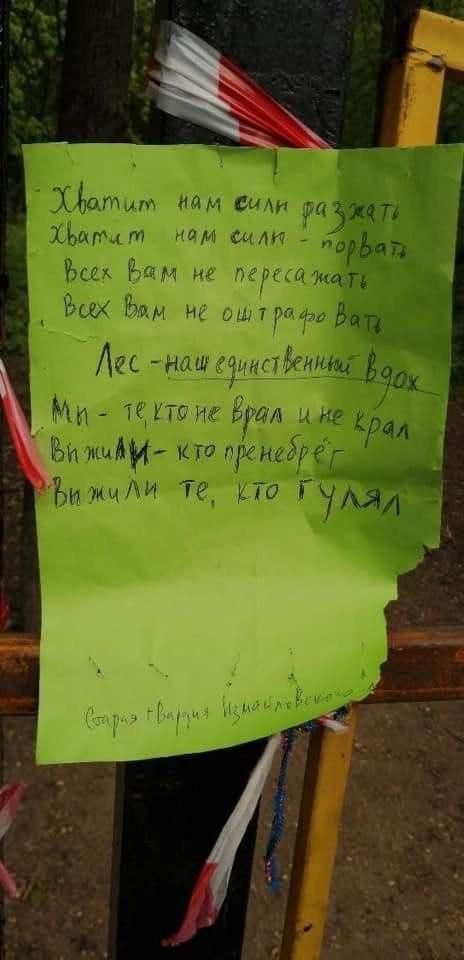 Хватит нам силы разжать
Хватит нам силы - порвать
Всех Вам не пересажать
Всех Вам не оштрафовать
Лес - наш единственный вдох
Мы - те, кто не врал и не крал
Выжили - кто пренебрёг
Выжили те, кто гулял
Старая гвардия Измайловского